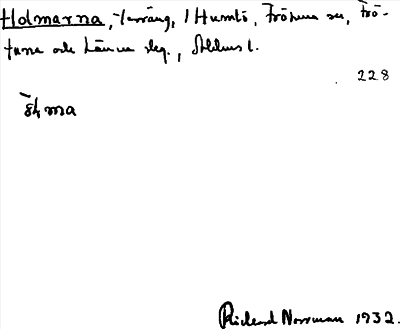 Holmarna, terräng, i Humlö, Frötuna sn, Frö-
tuna och Länna skg., Sthlms l.
228
ȫḷma
Richard Norrman 1932.